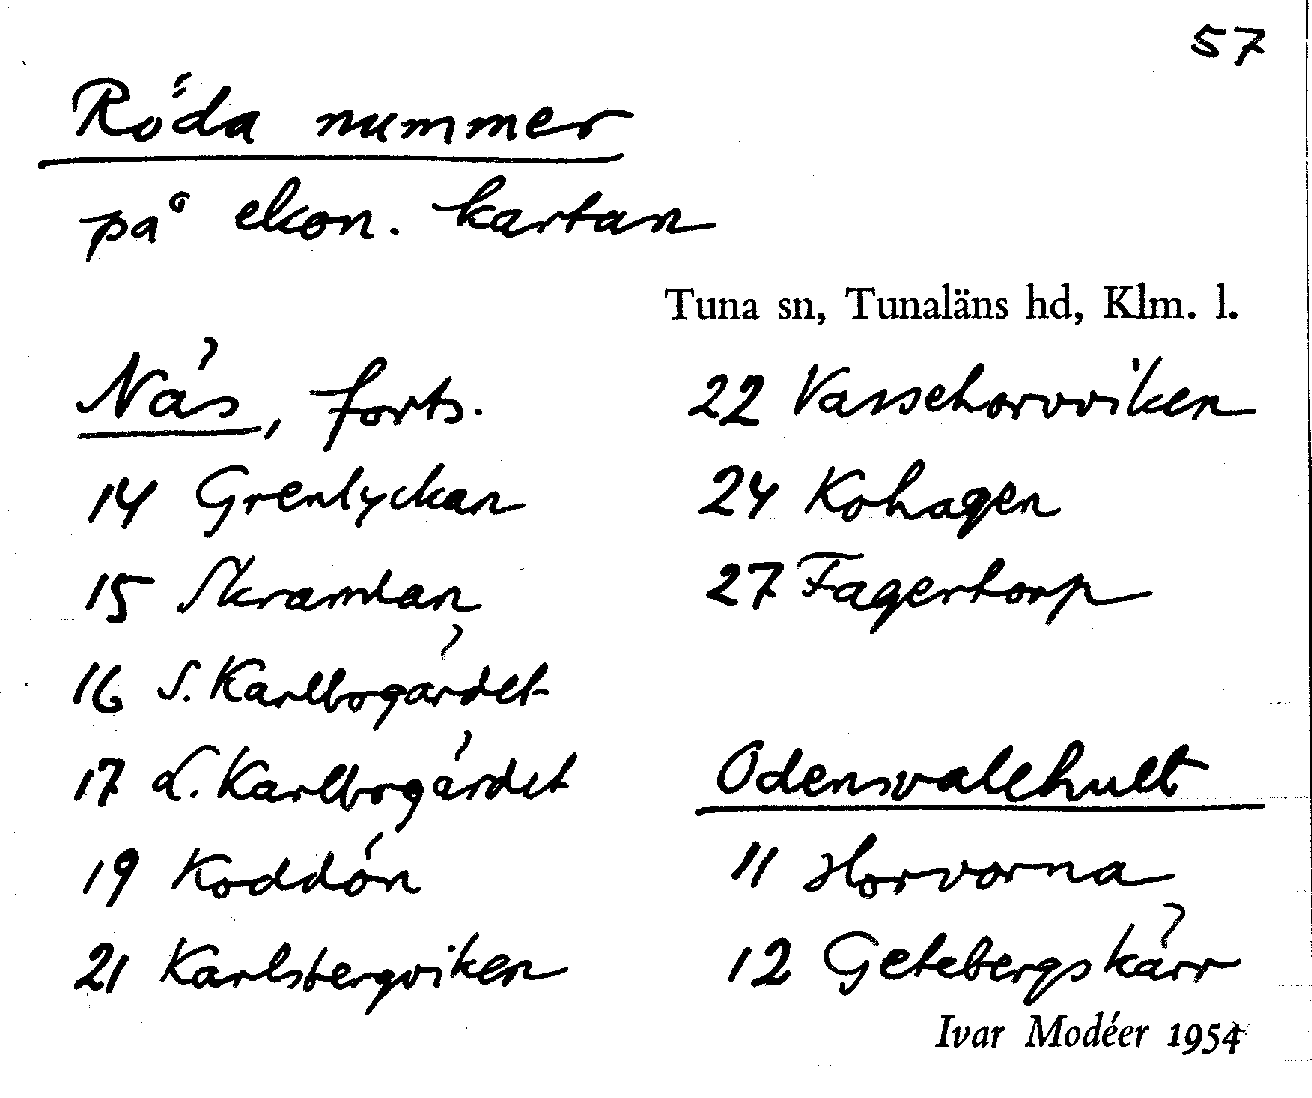 57
Röda nummer
på ekon. kartan
Tuna sn, Tunaläns hd, Klm. l.
Näs, forts.
14 Grenlyckan
15 Skramlan
16 S. Karlbogärdet
17 L. Karlbogärdet
19 Koddön
21 Karlsbergviken
22 Vassehorvviken
24 Kohagen
27 Fagertorp
Odensvalehult
11 Horvorna
12 Getebergskärr
Ivar Modéer 1954